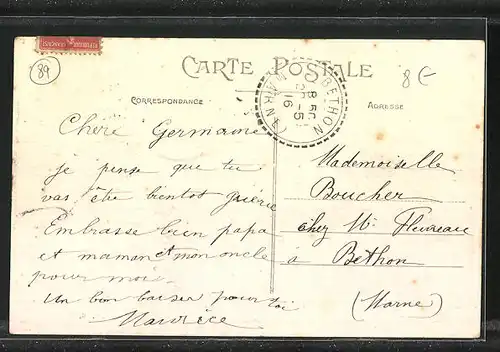 89
CARTE POSTALE
8 €
CORRESPONDANCE
ADRESSE
BETHON
MARNE
16
Chère Germaine
je pense que tu
vas être bientot guérie
Embrasse bien papa
et maman et mon oncle
pour moi.
Un bon baiser pour toi
Maurice
Mademoiselle
Boucher
chez Mr Fleureau
à Bethon
(Marne)